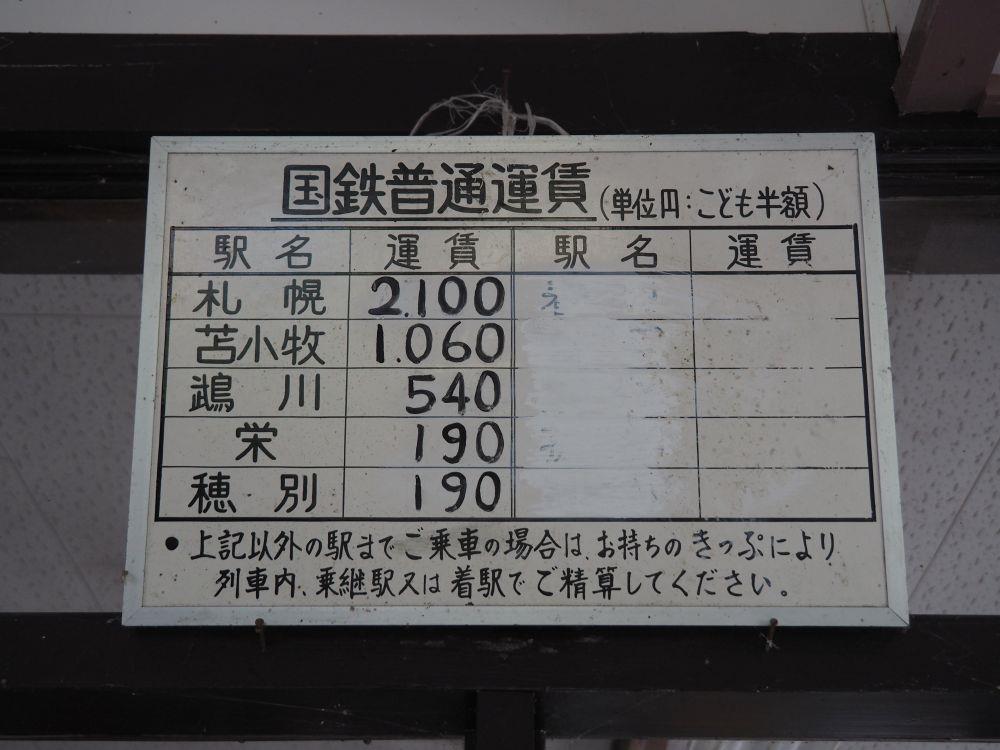 国鉄普通運賃(単位円:こども半額)
駅名 運賃 駅名 運賃
札幌 2.100
苫小牧 1.060
鵡川 540
栄 190
穂別 190
●上記以外の駅までご乗車の場合は、お持ちのきっぷにより
列車内、乗継駅又は着駅でご精算してください。